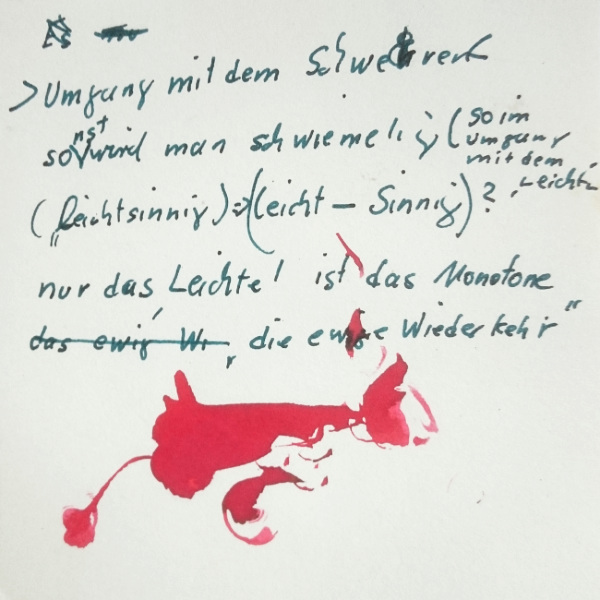 > Umgang mit dem Schweren
sonst wird man schwiemelig (so im Umgang mit dem „Leicht“
(„leichtsinnig) => (leicht – Sinnig)?
nur das Leichte! ist das Monotone
das ewig W , die ewige Wiederkehr"